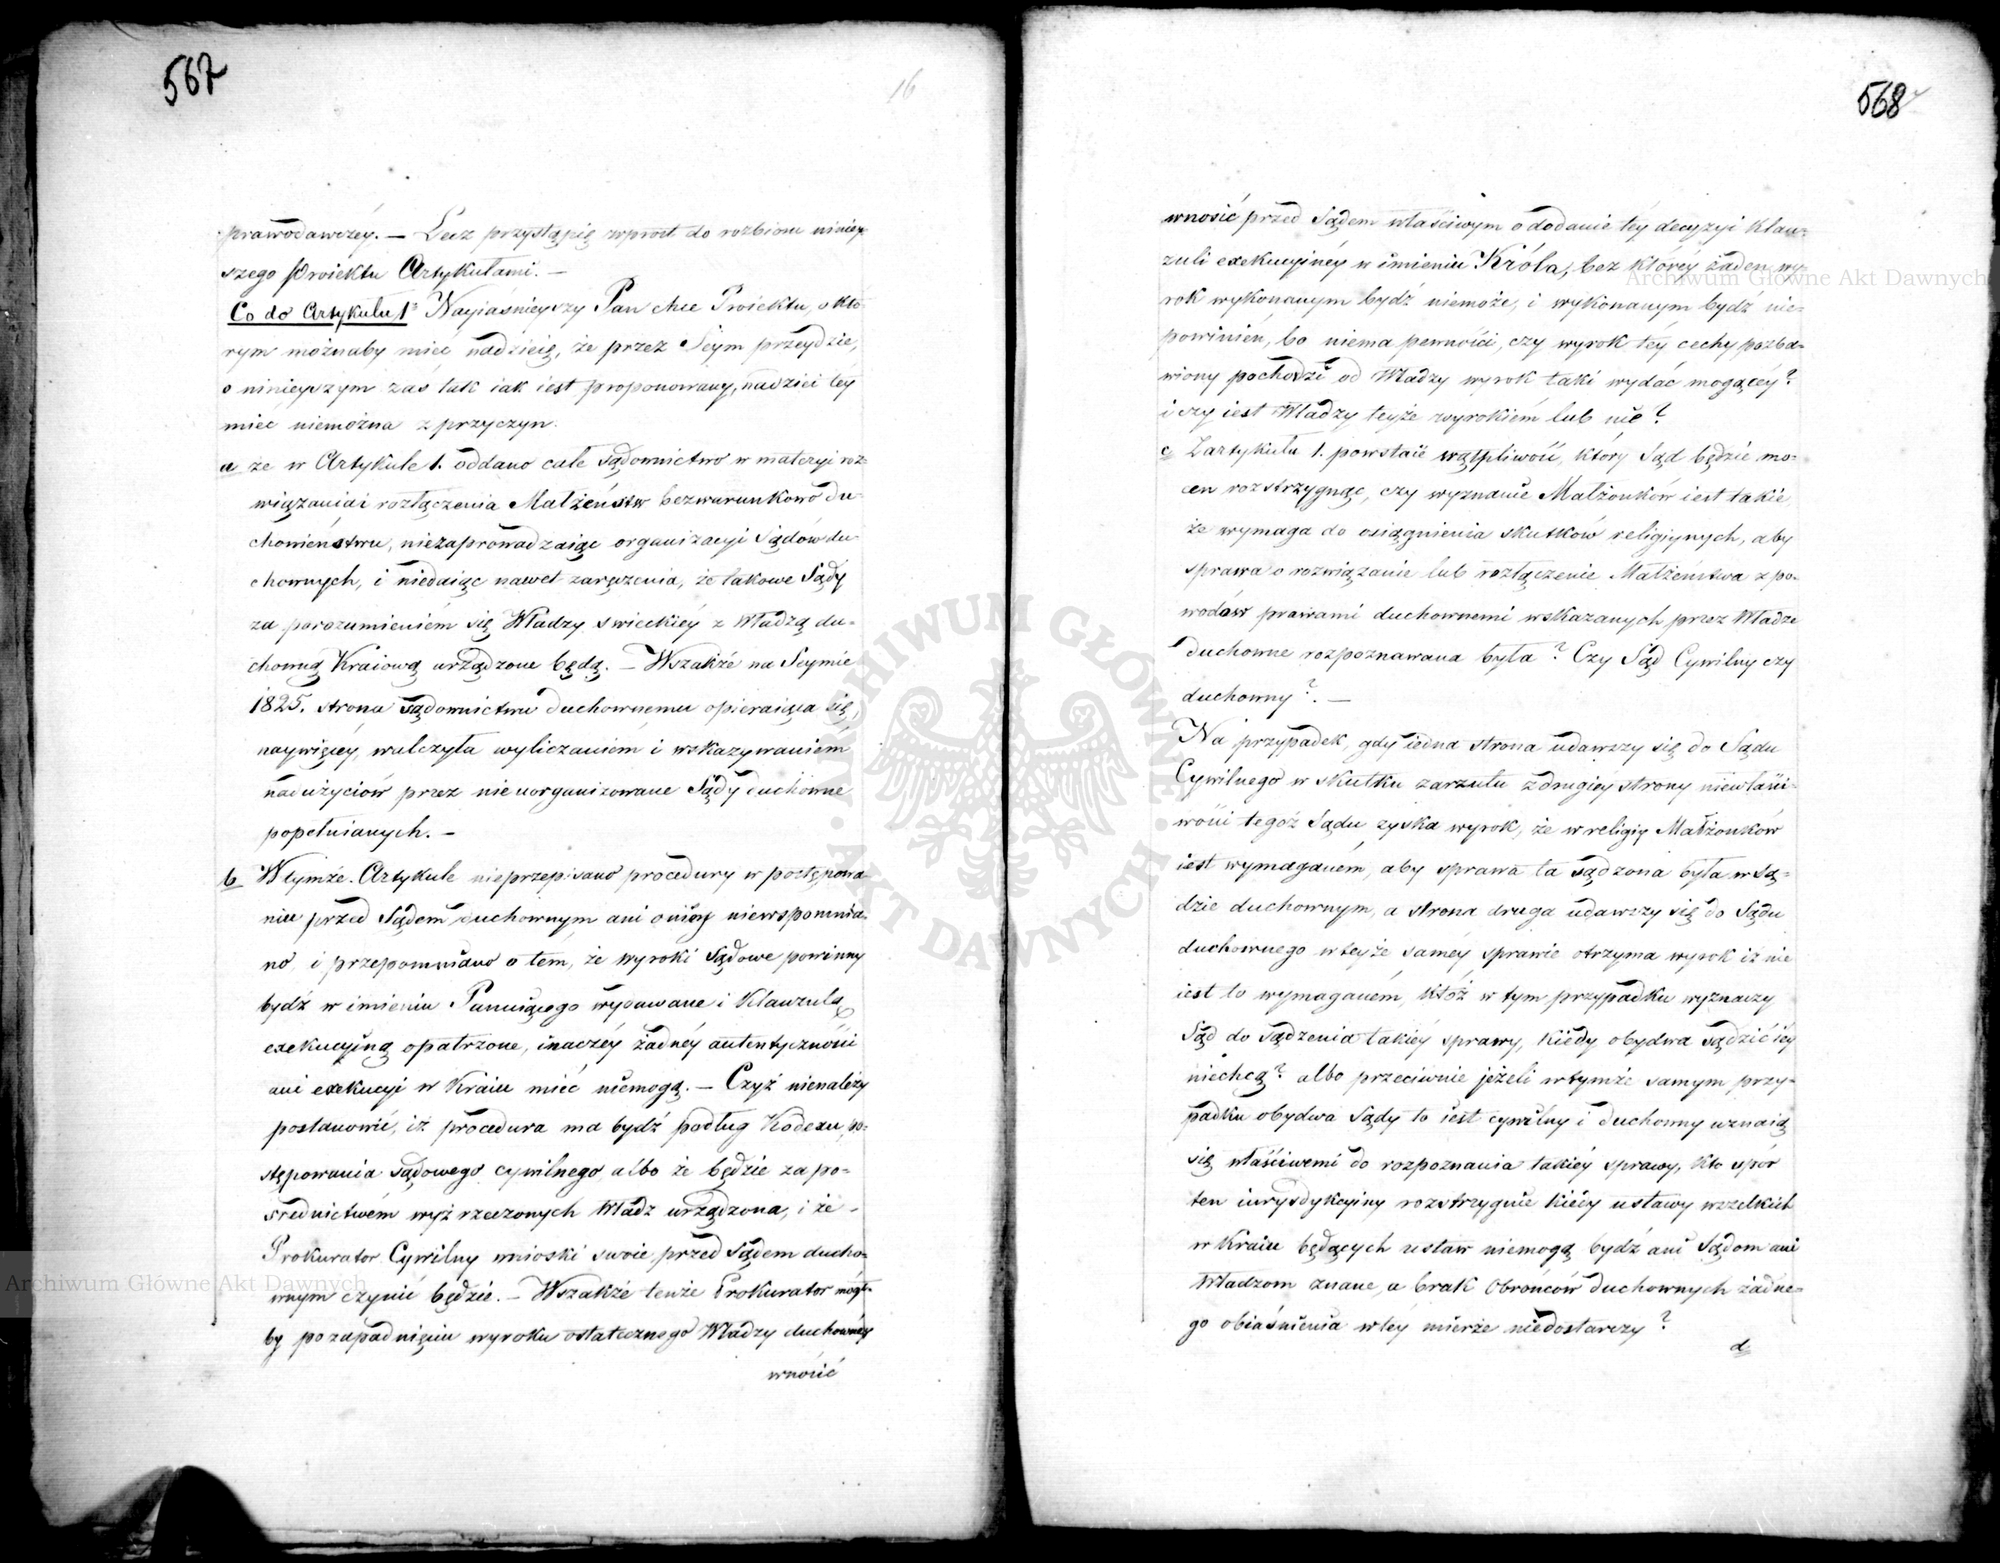 567
16
prawodawczéy. — Lecz przystąpię wprost do rozbioru niniey-
szego Proiektu Artykułami. —
Co do Artykułu 1º Nayiaśnieyszy Pan chce Proiektu, o któ-
rym możnaby mieć nadzieię, że przez Seym przeydzie,
o ninieyszym zaś tak iak iest proponowany, nadziei tey
mieć niemożna z przyczyn.
a że w Artykule 1. oddano całe sądownictwo w materyi roz-
wiązania i rozłączenia Małżeństw bezwarunkowo du-
chowieństwu, niezaprowadzaiąc organizacyi Sądów du-
chownych, i niedaiąc nawet zaręczenia, że takowe Sądy
za porozumieniém się Władzy swieckiéy z Władzą du-
chowną Kraiową urządzone będą. — Wszakże na Seymie
1825. strona sądownictwu duchownemu opieraiąca się,
naywięcéy, walczyła wyliczaniém i wskazywaniém
nadużyciów przez nieuorganizowane Sądy duchowne
popełnianych. —
b W tymże Artykule nieprzepisano procedury w postępowa-
niu przed Sądem duchownym ani o niéy niewspomnia-
no, i przepomniano o tém, że wyroki Sądowe powinny
bydź w imieniu Panuiącego wydawane i Klauzulą
exekucyiną opatrzone, inaczéy żadnéy autentyczności
ani exekucyi w Kraiu mieć niemogą. — Czyż nienależy
postanowić, iż procedura ma bydź podług Kodexu, po-
stępowania sądowego cywilnego albo że będzie za po-
srednictwém wyż rzeczonych Władz urządzona, i że —
Prokurator Cywilny wnioski swoie przed Sądem ducho-
wnym czynić będzie. — Wszakże tenże Prokurator mógł-
by po zapadnięciu wyroku ostatecznego Władzy duchownéy
wnosić
568
wnosić przed Sądem właściwym o dodanie téy decyzyi Klau-
zuli exekucyinéy w imieniu Króla, bez któréy żaden wy-
rok wykonanym bydź niemoże, i wykonanym bydź nie-
powinien, bo niema pewności, czy wyrok téy cechy pozba-
wiony pochodzi od Władzy wyrok taki wydać mogącéy?
i czy iest Władzy teyże wyrokiem lub nie?
c Z artykułu 1. powstaie wątpliwość, który Sąd będzie mo-
cen rozstrzygnąć, czy wyznanie Małżonków iest takie,
że wymaga do osiągnienia skutków religiynych, aby
sprawa o rozwiązanie lub rozłączenie Małżeństwa z po-
wodów prawami duchownemi wskazanych przez Władze
duchowne rozpoznawana była? Czy Sąd Cywilny czy
duchowny? —
Na przypadek, gdy iedna strona udawszy się do Sądu
Cywilnego w skutku zarzutu z drugiey strony niewłaści-
wości tegoż Sądu zyska wyrok, że w religiy Małżonków
iest wymaganém, aby sprawa ta sądzona była w Są-
dzie duchownym, a strona druga udawszy się do Sądu
duchownego w teyże saméy sprawie otrzyma wyrok iż nie
iest to wymaganém, któż w tym przypadku wyznaczy
Sąd do sądzenia takiéy sprawy, kiedy obydwa sądzić iéy
niechcą? albo przeciwnie jeżeli w tymże samym przy-
padku obydwa Sądy to iest cywilny i duchowny uznaią
się właściwemi do rozpoznania takiéy sprawy, kto spór
ten iurysdykcyiny rozstrzygnie kiedy ustawy wszelkich
w Kraiu będących ustaw niemogą bydź ani Sądom ani
Władzom znane, a brak Obrońców duchownych żadne-
go obiaśnienia w téy mierze niedostarczy?
d
Archiwum Główne Akt Dawnych
Archiwum Główne Akt Dawnych
ARCHIWUM GŁÓWNE
AKT DAWNYCH